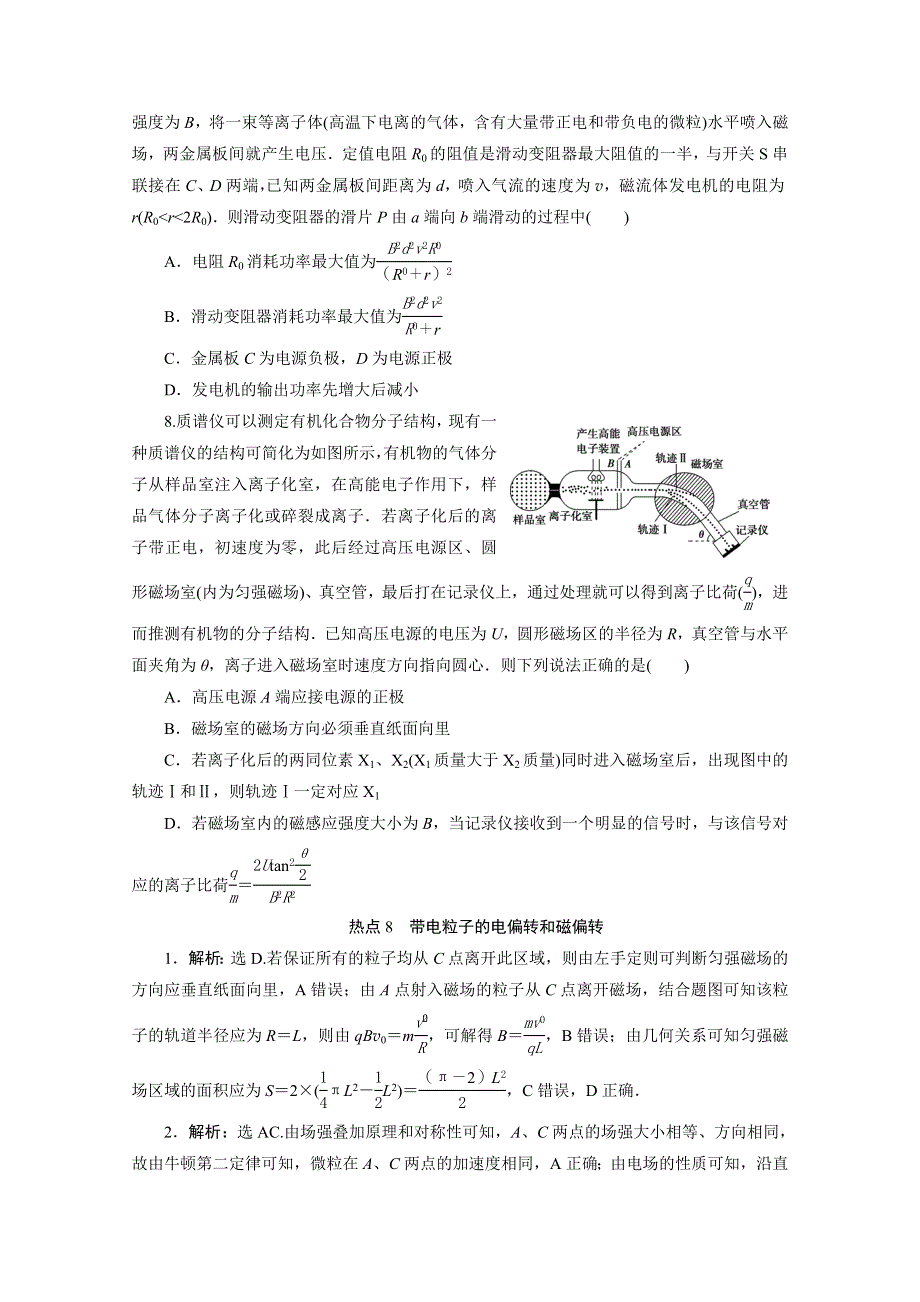 强度为 B，将一束等离子体(高温下电离的气体，含有大量带正电和带负电的微粒)水平喷入磁
场，两金属板间就产生电压．定值电阻 R₀的阻值是滑动变阻器最大阻值的一半，与开关 S 串
联接在 C、D 两端，已知两金属板间距离为 d，喷入气流的速度为 v，磁流体发电机的电阻为
r(R₀<r<2R₀)．则滑动变阻器的滑片 P 由 a 端向 b 端滑动的过程中(　　)
A．电阻 R₀消耗功率最大值为B²d²v²R⁰/（R⁰＋r）²
B．滑动变阻器消耗功率最大值为B²d²v²/R⁰＋r
C．金属板 C 为电源负极，D 为电源正极
D．发电机的输出功率先增大后减小
8.质谱仪可以测定有机化合物分子结构，现有一
种质谱仪的结构可简化为如图所示，有机物的气体分
子从样品室注入离子化室，在高能电子作用下，样
品气体分子离子化或碎裂成离子．若离子化后的离
子带正电，初速度为零，此后经过高压电源区、圆
产生高能
电子装置
高压电源区
B A
轨迹Ⅱ
磁场室
真空管
样品室
离子化室
轨迹Ⅰ
θ
记录仪
形磁场室(内为匀强磁场)、真空管，最后打在记录仪上，通过处理就可以得到离子比荷(q/m)，进
而推测有机物的分子结构．已知高压电源的电压为 U，圆形磁场区的半径为 R，真空管与水平
面夹角为 θ，离子进入磁场室时速度方向指向圆心．则下列说法正确的是(　　)
A．高压电源 A 端应接电源的正极
B．磁场室的磁场方向必须垂直纸面向里
C．若离子化后的两同位素 X₁、X₂(X₁质量大于 X₂质量)同时进入磁场室后，出现图中的
轨迹Ⅰ和Ⅱ，则轨迹Ⅰ一定对应 X₁
D．若磁场室内的磁感应强度大小为 B，当记录仪接收到一个明显的信号时，与该信号对
应的离子比荷q/m＝2Utan²θ/2/B²R²
热点 8　带电粒子的电偏转和磁偏转
1．解析：选 D.若保证所有的粒子均从 C 点离开此区域，则由左手定则可判断匀强磁场的
方向应垂直纸面向里，A 错误；由 A 点射入磁场的粒子从 C 点离开磁场，结合题图可知该粒
子的轨道半径应为 R＝L，则由 qBv₀＝mv₀²/R，可解得 B＝mv⁰/qL，B 错误；由几何关系可知匀强磁
场区域的面积应为 S＝2×(1/4πL²－1/2L²)＝（π－2）L²/2，C 错误，D 正确．
2．解析：选 AC.由场强叠加原理和对称性可知，A、C 两点的场强大小相等、方向相同，
故由牛顿第二定律可知，微粒在 A、C 两点的加速度相同，A 正确；由电场的性质可知，沿直